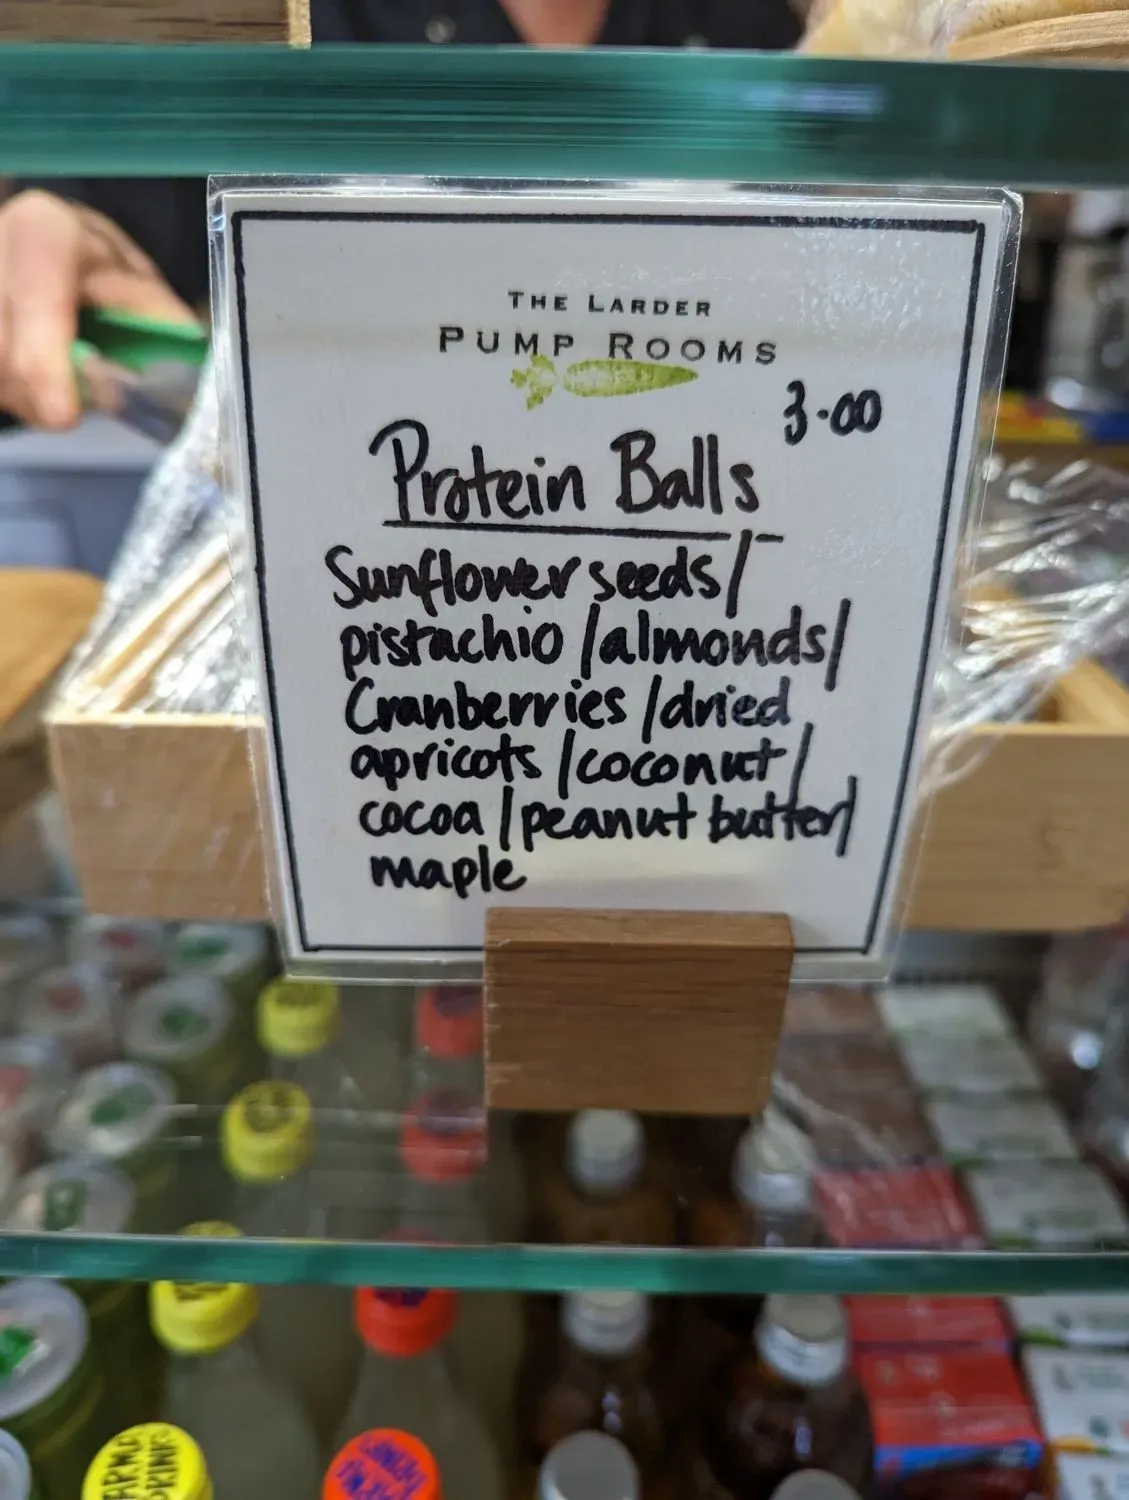 THE LARDER
PUMP ROOMS
3.00
Protein Balls
Sunflower seeds/
pistachio/almonds/
Cranberries/dried
apricots/coconut/
cocoa/peanut butter/
maple